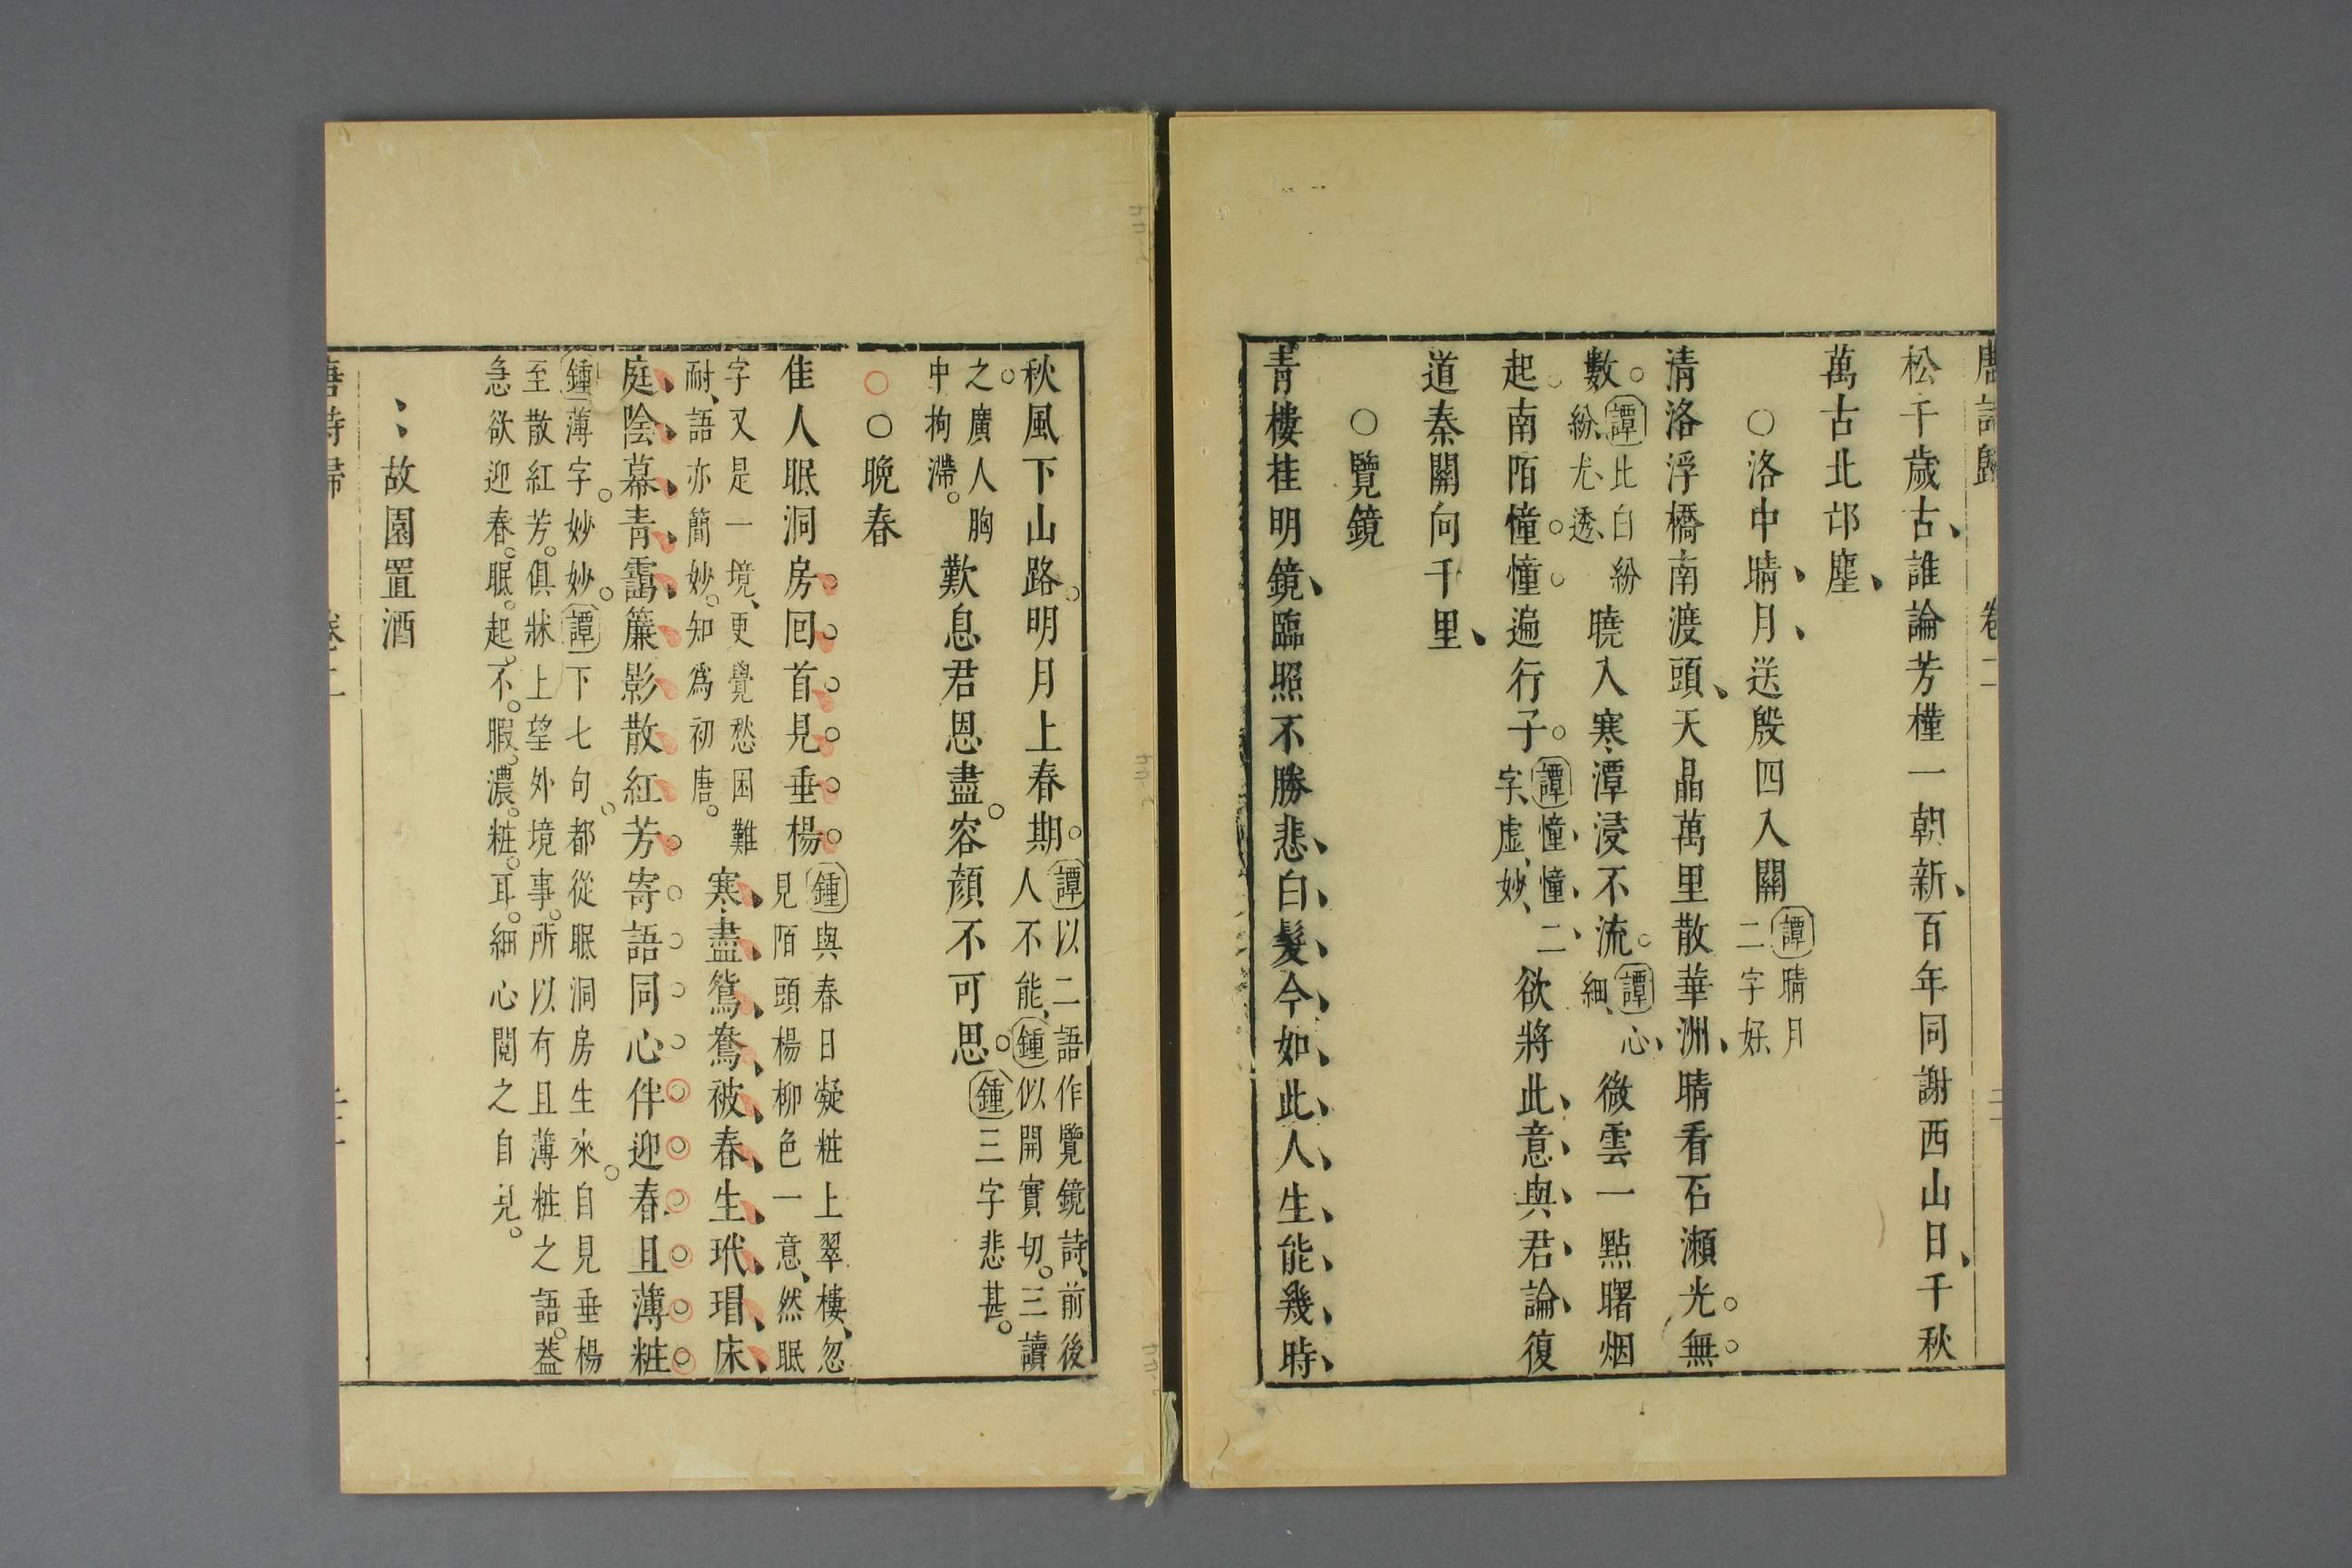 唐詩歸 卷二
松千歲古誰論芳槿一朝新百年同謝西山日千秋
萬古北邙塵
○洛中晴月送殷四入關 譚晴月二字好
清洛浮橋南渡頭天晶萬里散華洲晴看石瀬光無
數 譚此白紛紛尤透 曉入寒潭浸不流 譚心細 微雲一點曙烟
起南陌憧憧遍行子 譚憧憧二字虛妙 欲將此意與君論復
道秦關向千里
○覽鏡
青樓挂明鏡臨照不勝悲白髮今如此人生能幾時
秋風下山路明月上春期 譚以二語作覽鏡詩前後人不能 鍾似開實切三讀
之廣人胸中拘滯 歎息君恩盡容顏不可思 鍾三字悲甚
○○晚春
佳人眠洞房回首見垂楊 鍾與春日凝粧上翠樓忽見陌頭楊柳色一意然眠
字又是一境更覺愁困難耐語亦簡妙知爲初唐 寒盡鴛鴦被春生玳瑁床
庭陰暮青靄簾影散紅芳寄語同心伴迎春且薄粧
鍾薄字妙妙 譚下七句都從眠洞房生來自見垂楊
至散紅芳俱牀上望外境事所以有且薄粧之語葢
急欲迎春眠起不暇濃粧耳細心閱之自見
故園置酒
唐詩歸 卷二